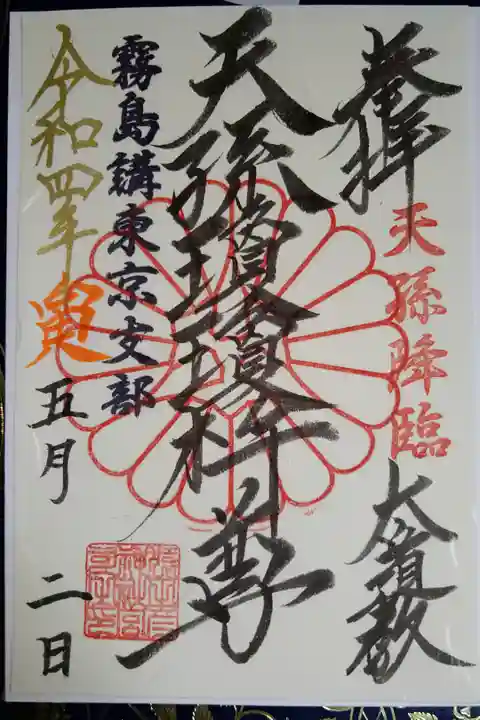 奉拝
天孫降臨
大嶺教
天孫瓊瓊杵尊
霧島講東京支部
令和四年寅五月二日